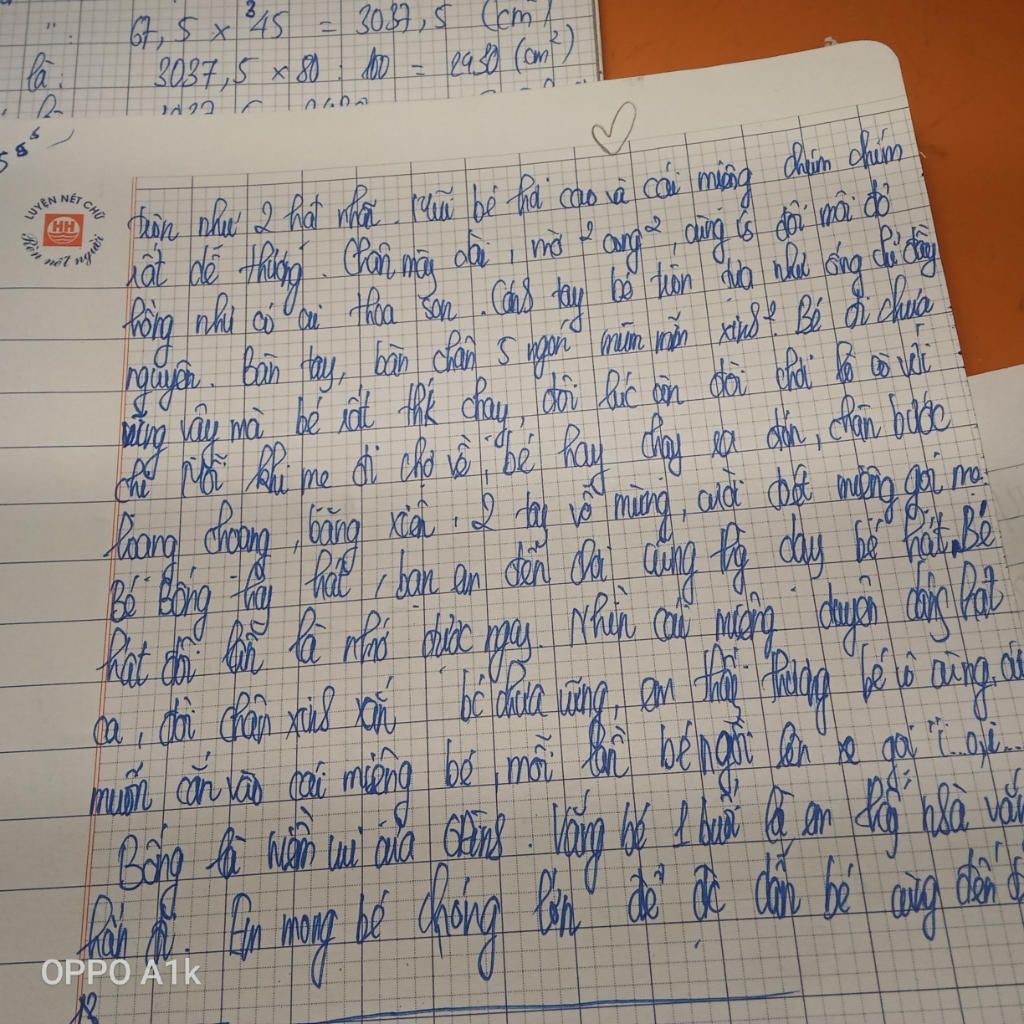 67,5 x 45 = 3037,5 (cm
là: 3037,5 x 80 : 100 = 2430 (cm²)
LUYỆN NÉT CHỮ
HH
Rèn nết người
tròn như 2 hạt nhãn. Mũi bé hơi cao và cái miệng chúm chím
rất dễ thương. Chân mày dài, mờ
hồng như có ai thoa son. tay bé tròn lựa như ống chỉ đầy
nguyên. Bàn tay, bàn chân 5 ngón mũm mĩm Bé đi chưa
vững vậy mà bé rất thk chạy, đôi lúc còn đòi chơi lò cò với
chị. Mỗi khi mẹ đi chợ về, bé hay chạy ra đón, chân bước
loạng choạng, 2 tay vỗ mừng, cười gọi mẹ.
Bé Bống hay hát, bạn em đến chơi cũng dạy bé hát. Bé
hát đôi lần là nhớ được ngay. Nhìn cái miệng duyên dáng hát
ca, đôi chân bé chưa vững, em thấy thương bé vô cùng,
muốn cắn vào cái miệng bé mỗi lần bé ngồi lên xe gọi "i...ơi...
Bống là niềm vui của Vắng bé 1 buổi là em thấy nhà vắng
hẳn đi. Em mong bé chóng lớn để đc dẫn bé cùng đến
OPPO A1k